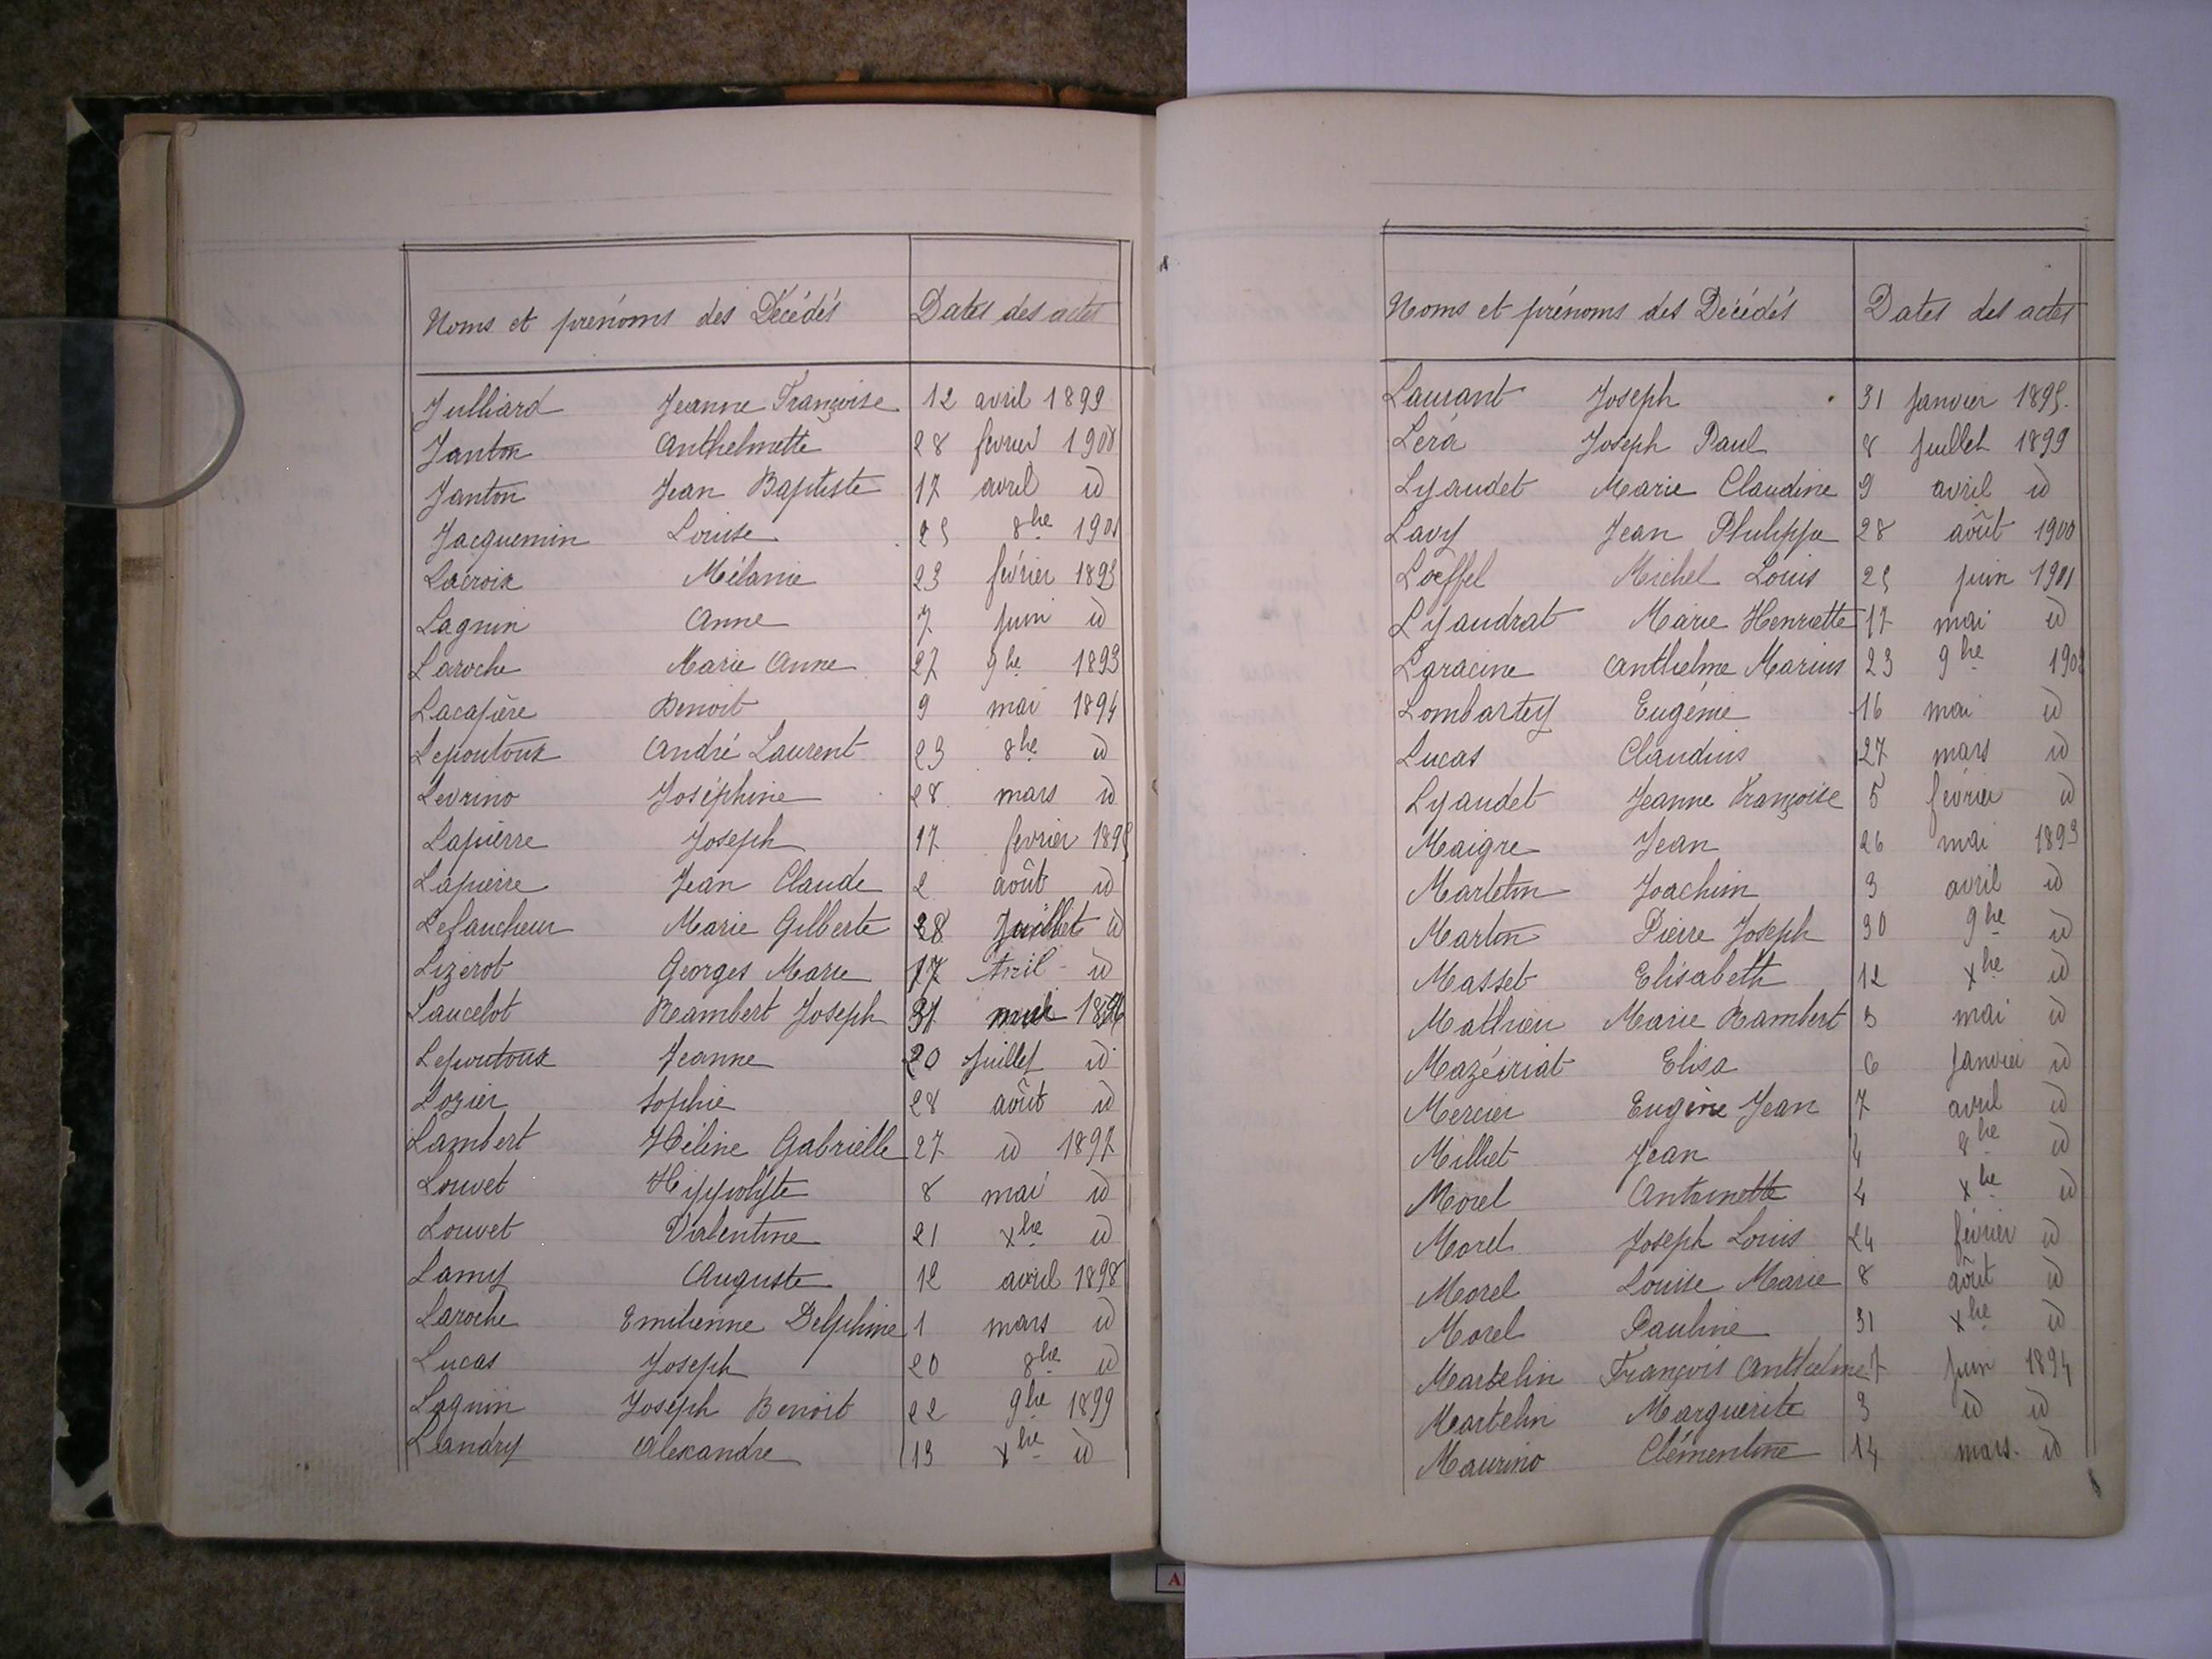 Noms et prénoms des Décédés Dates des actes
Julliard Jeanne Françoise 12 avril 1899
Janton Anthelmette 28 février 1900
Janton Jean Baptiste 17 avril id
Jacquemin Louise 25 8bre 1901
Lacroix Mélanie 23 février 1893
Lagnin Anne 7 juin id
Laroche Marie Anne 27 9bre 1893
Lacapère Benoit 9 mai 1894
Lepoutoux André Laurent 23 8bre id
Levrino Joséphine 28 mars id
Lapierre Joseph 17 février
Lapierre Jean Claude 2 août id
Lefaucheur Marie Gilberte 28 Juillet id
Lizerot Georges Marie 17 Avril id
Lancelot Reambert Joseph 31 1896
Lepoutoux Jeanne 20 Juillet id
Lozier Sophie 28 août id
Lambert Héline Gabrielle 27 id 1897
Louvet Hippolyte 8 mai id
Louvet Valentine 21 Xbre id
Lamy Auguste 12 avril 1898
Laroche Emilienne Delphine 1 mars id
Lucas Joseph 20 8bre id
Lagnin Joseph Benoit 22 9bre 1899
Landry Alexandre 13 Xbre id
Noms et prénoms des Décédés Dates des actes
Laurant Joseph 31 Janvier 1895.
Léra Joseph Paul 8 Juillet 1899
Lyaudet Marie Claudine 9 avril id
Lavy Jean Philippe 28 août 1900
Loeffel Michel Louis 25 juin 1901
Lyaudrat Marie Henriette 17 mai id
Laracine Anthelme Marius 23 9bre
Lombartey Eugénie 16 mai id
Lucas Claudius 27 mars id
Lyaudet Jeanne Françoise 5 février id
Maigre Jean 26 mai 1893
Martelin Joachim 3 avril id
Martin Pierre Joseph 30 9bre id
Masset Elisabeth 12 Xbre id
Mathieu Marie Rambert 3 mai id
Mazéiriat Elisa 6 Janvier id
Mercier Eugène Jean 7 avril id
Milliet Jean 4 8bre id
Morel Antoinette 4 Xbre id
Morel Joseph Louis 24 février id
Morel Louise Marie 8 août id
Morel Pauline 31 Xbre id
Martelin François Anthelme 7 Juin 1894
Martelin Marguerite 3 id id
Maurino Clémentine 14 mars id